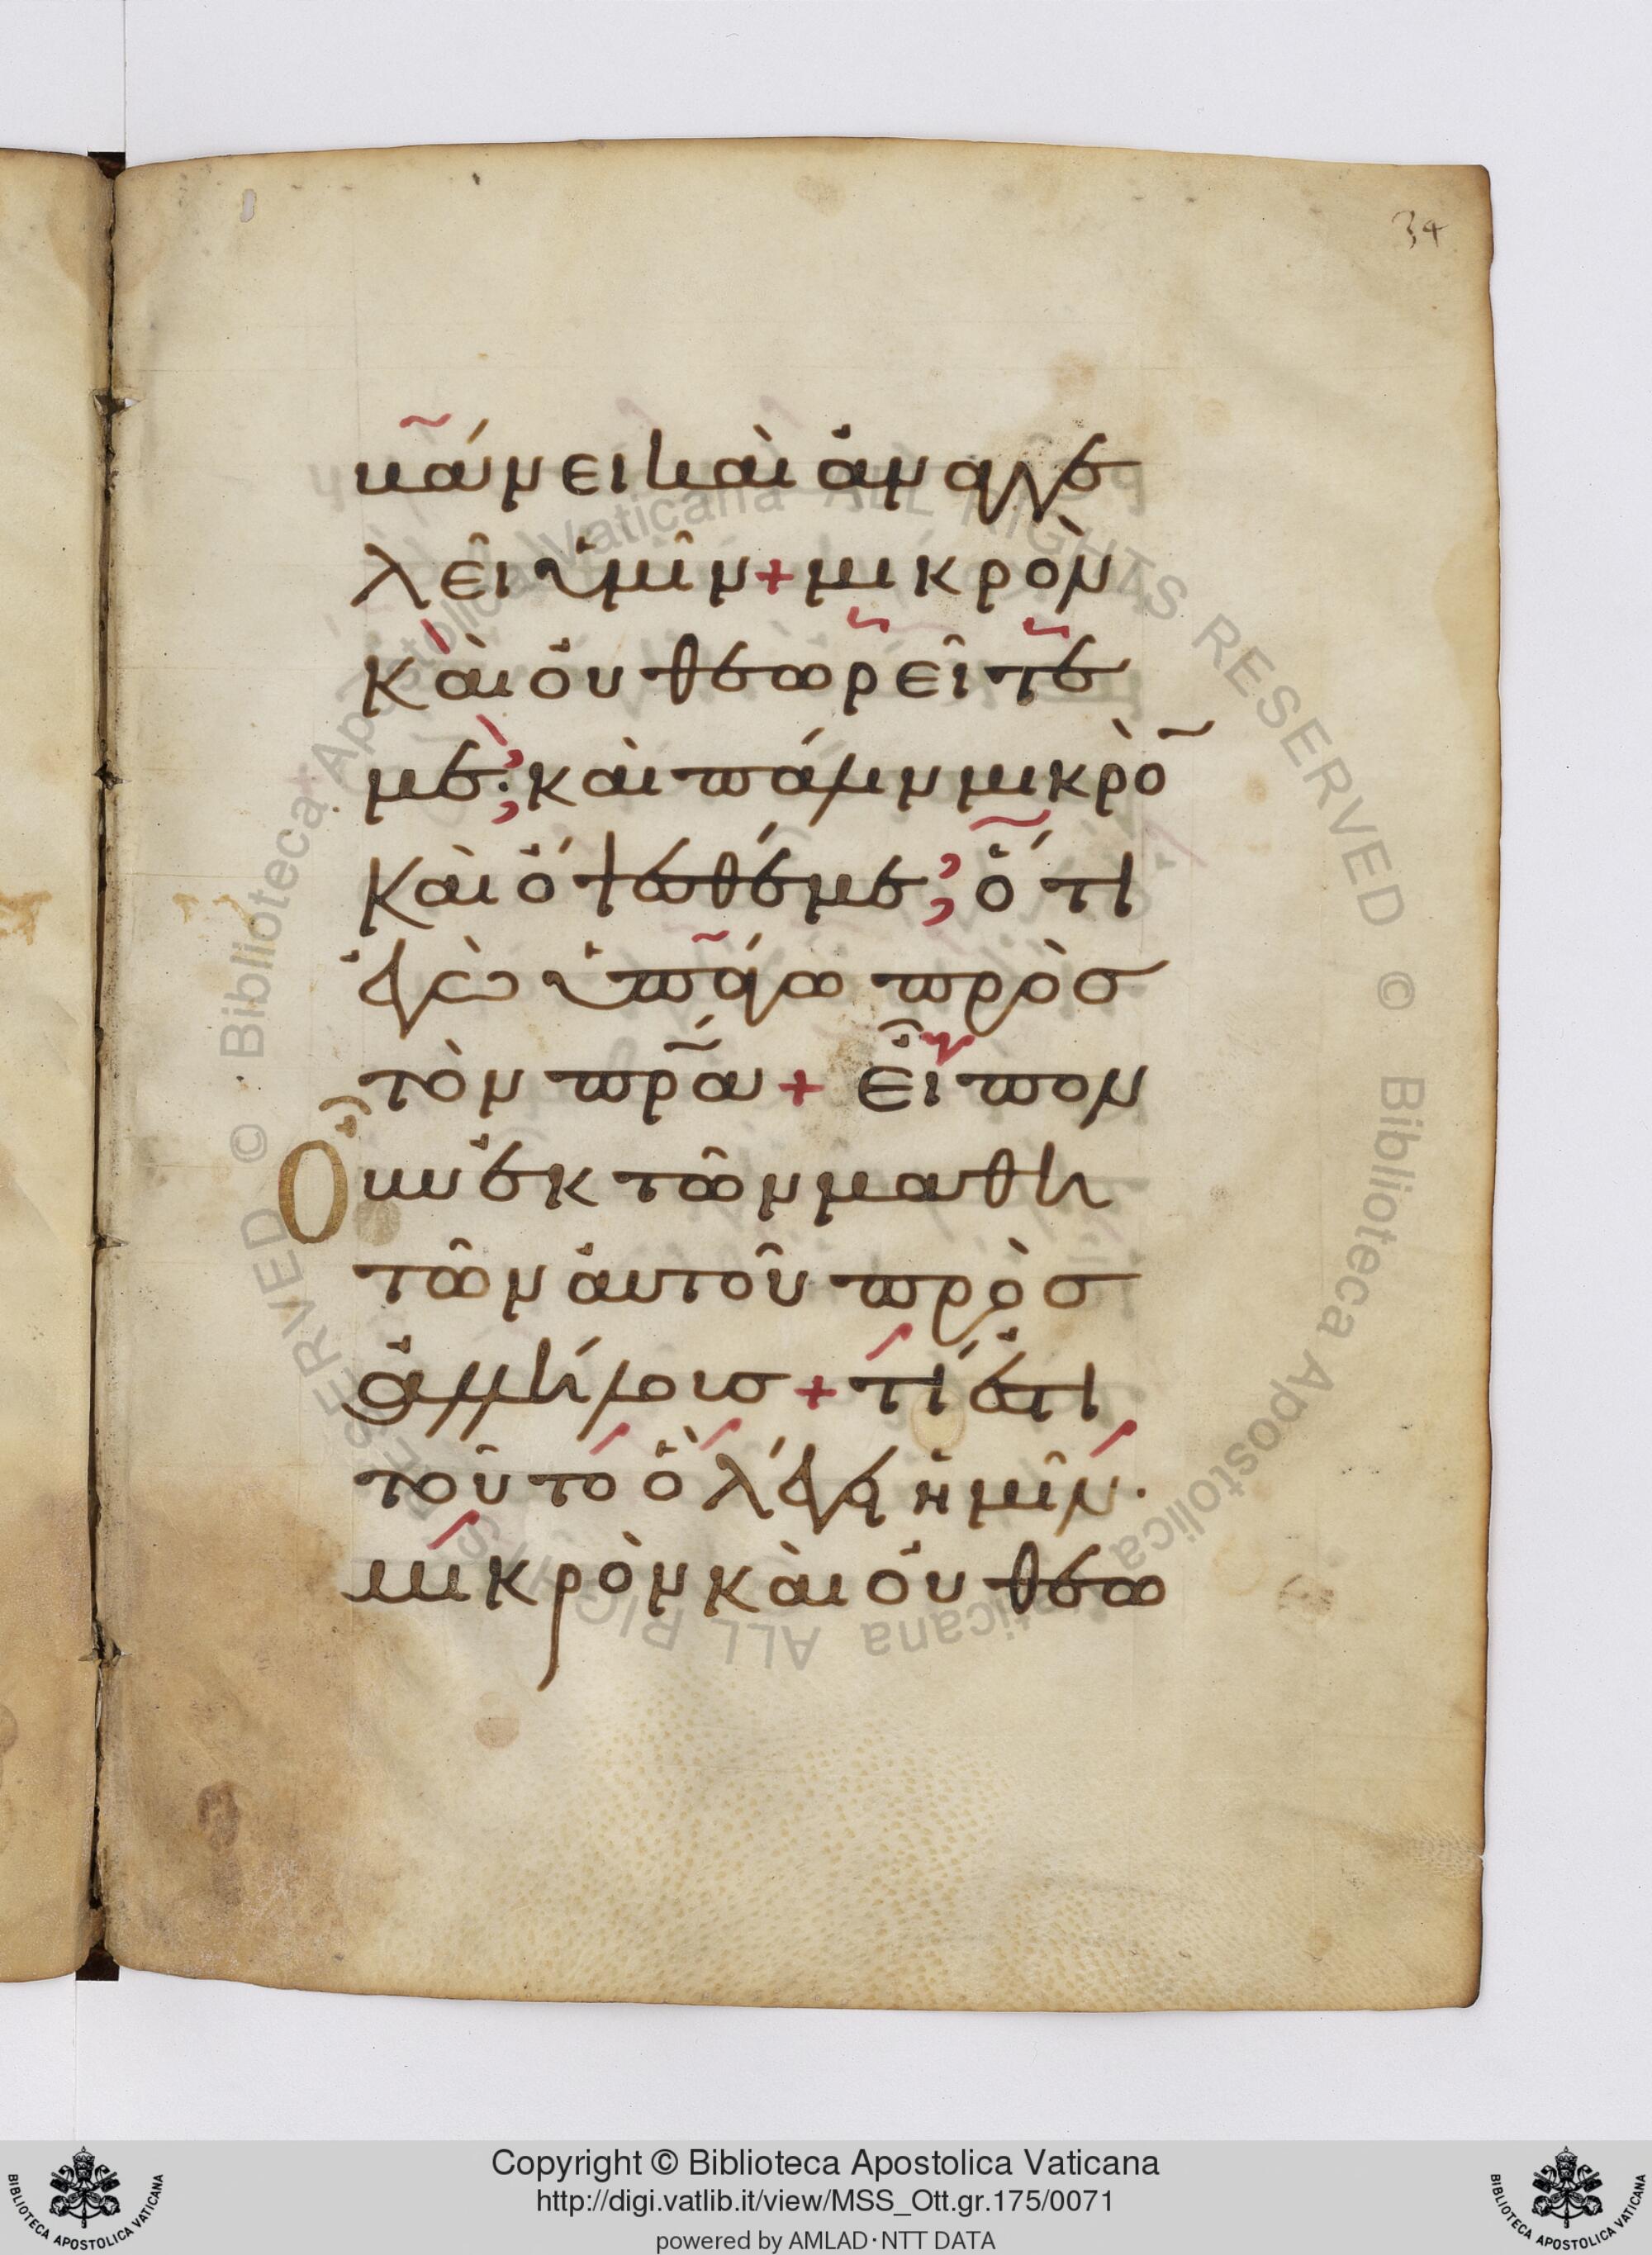 34
κάνει καὶ ἀναγγε
λεῖ ὑμῖν + μικρὸν
καὶ οὐ θεωρεῖτέ
με· καὶ πάλιν μικρὸ
καὶ ὄψεσθέ με· ὅτι
ἐγὼ ὑπάγω πρὸσ
τὸν πρα + εἶπον
Οὖν ἐκ τῶν μαθη
τῶν αὐτοῦ πρὸσ
ἀλλήλουσ + τί ἐστι
τοῦτο ὃ λέγει ἡμῖν·
μικρὸν καὶ οὐ θεω
© Biblioteca Apostolica Vaticana ALL RIGHTS RESERVED © Biblioteca Apostolica Vaticana ALL RIGHTS RESERVED
Copyright © Biblioteca Apostolica Vaticana
http://digi.vatlib.it/view/MSS_Ott.gr.175/0071
powered by AMLAD·NTT DATA
BIBLIOTECA APOSTOLICA VATICANA
BIBLIOTECA APOSTOLICA VATICANA